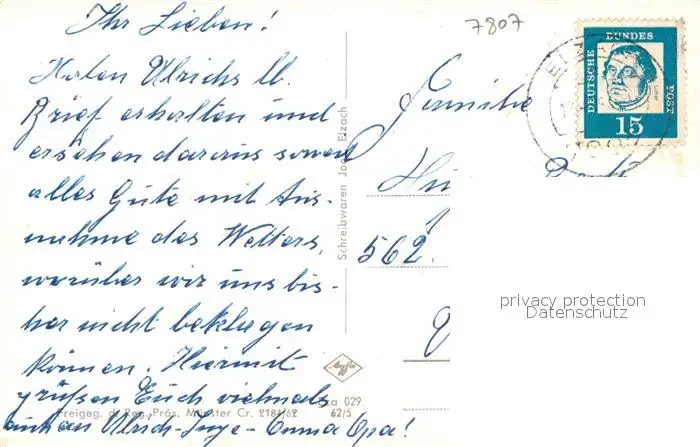 Ihr Lieben!
Haben Ulrichs lb.
Brief erhalten und
ersehen daraus soweit
alles Gute mit Aus-
nahme des Wetters,
worüber wir uns bis-
her nicht beklagen
können. Hiermit
grüßen Euch vielmals
auch an Ulrich-Inge-Oma Opa!
Freigeg. d. Reg. Präs. Münster Cr. 2184/62
029
62/5
Agfa
Schreibwaren Jo Elzach
7807
DEUTSCHE BUNDES POST
15
Familie
562
privacy protection
Datenschutz